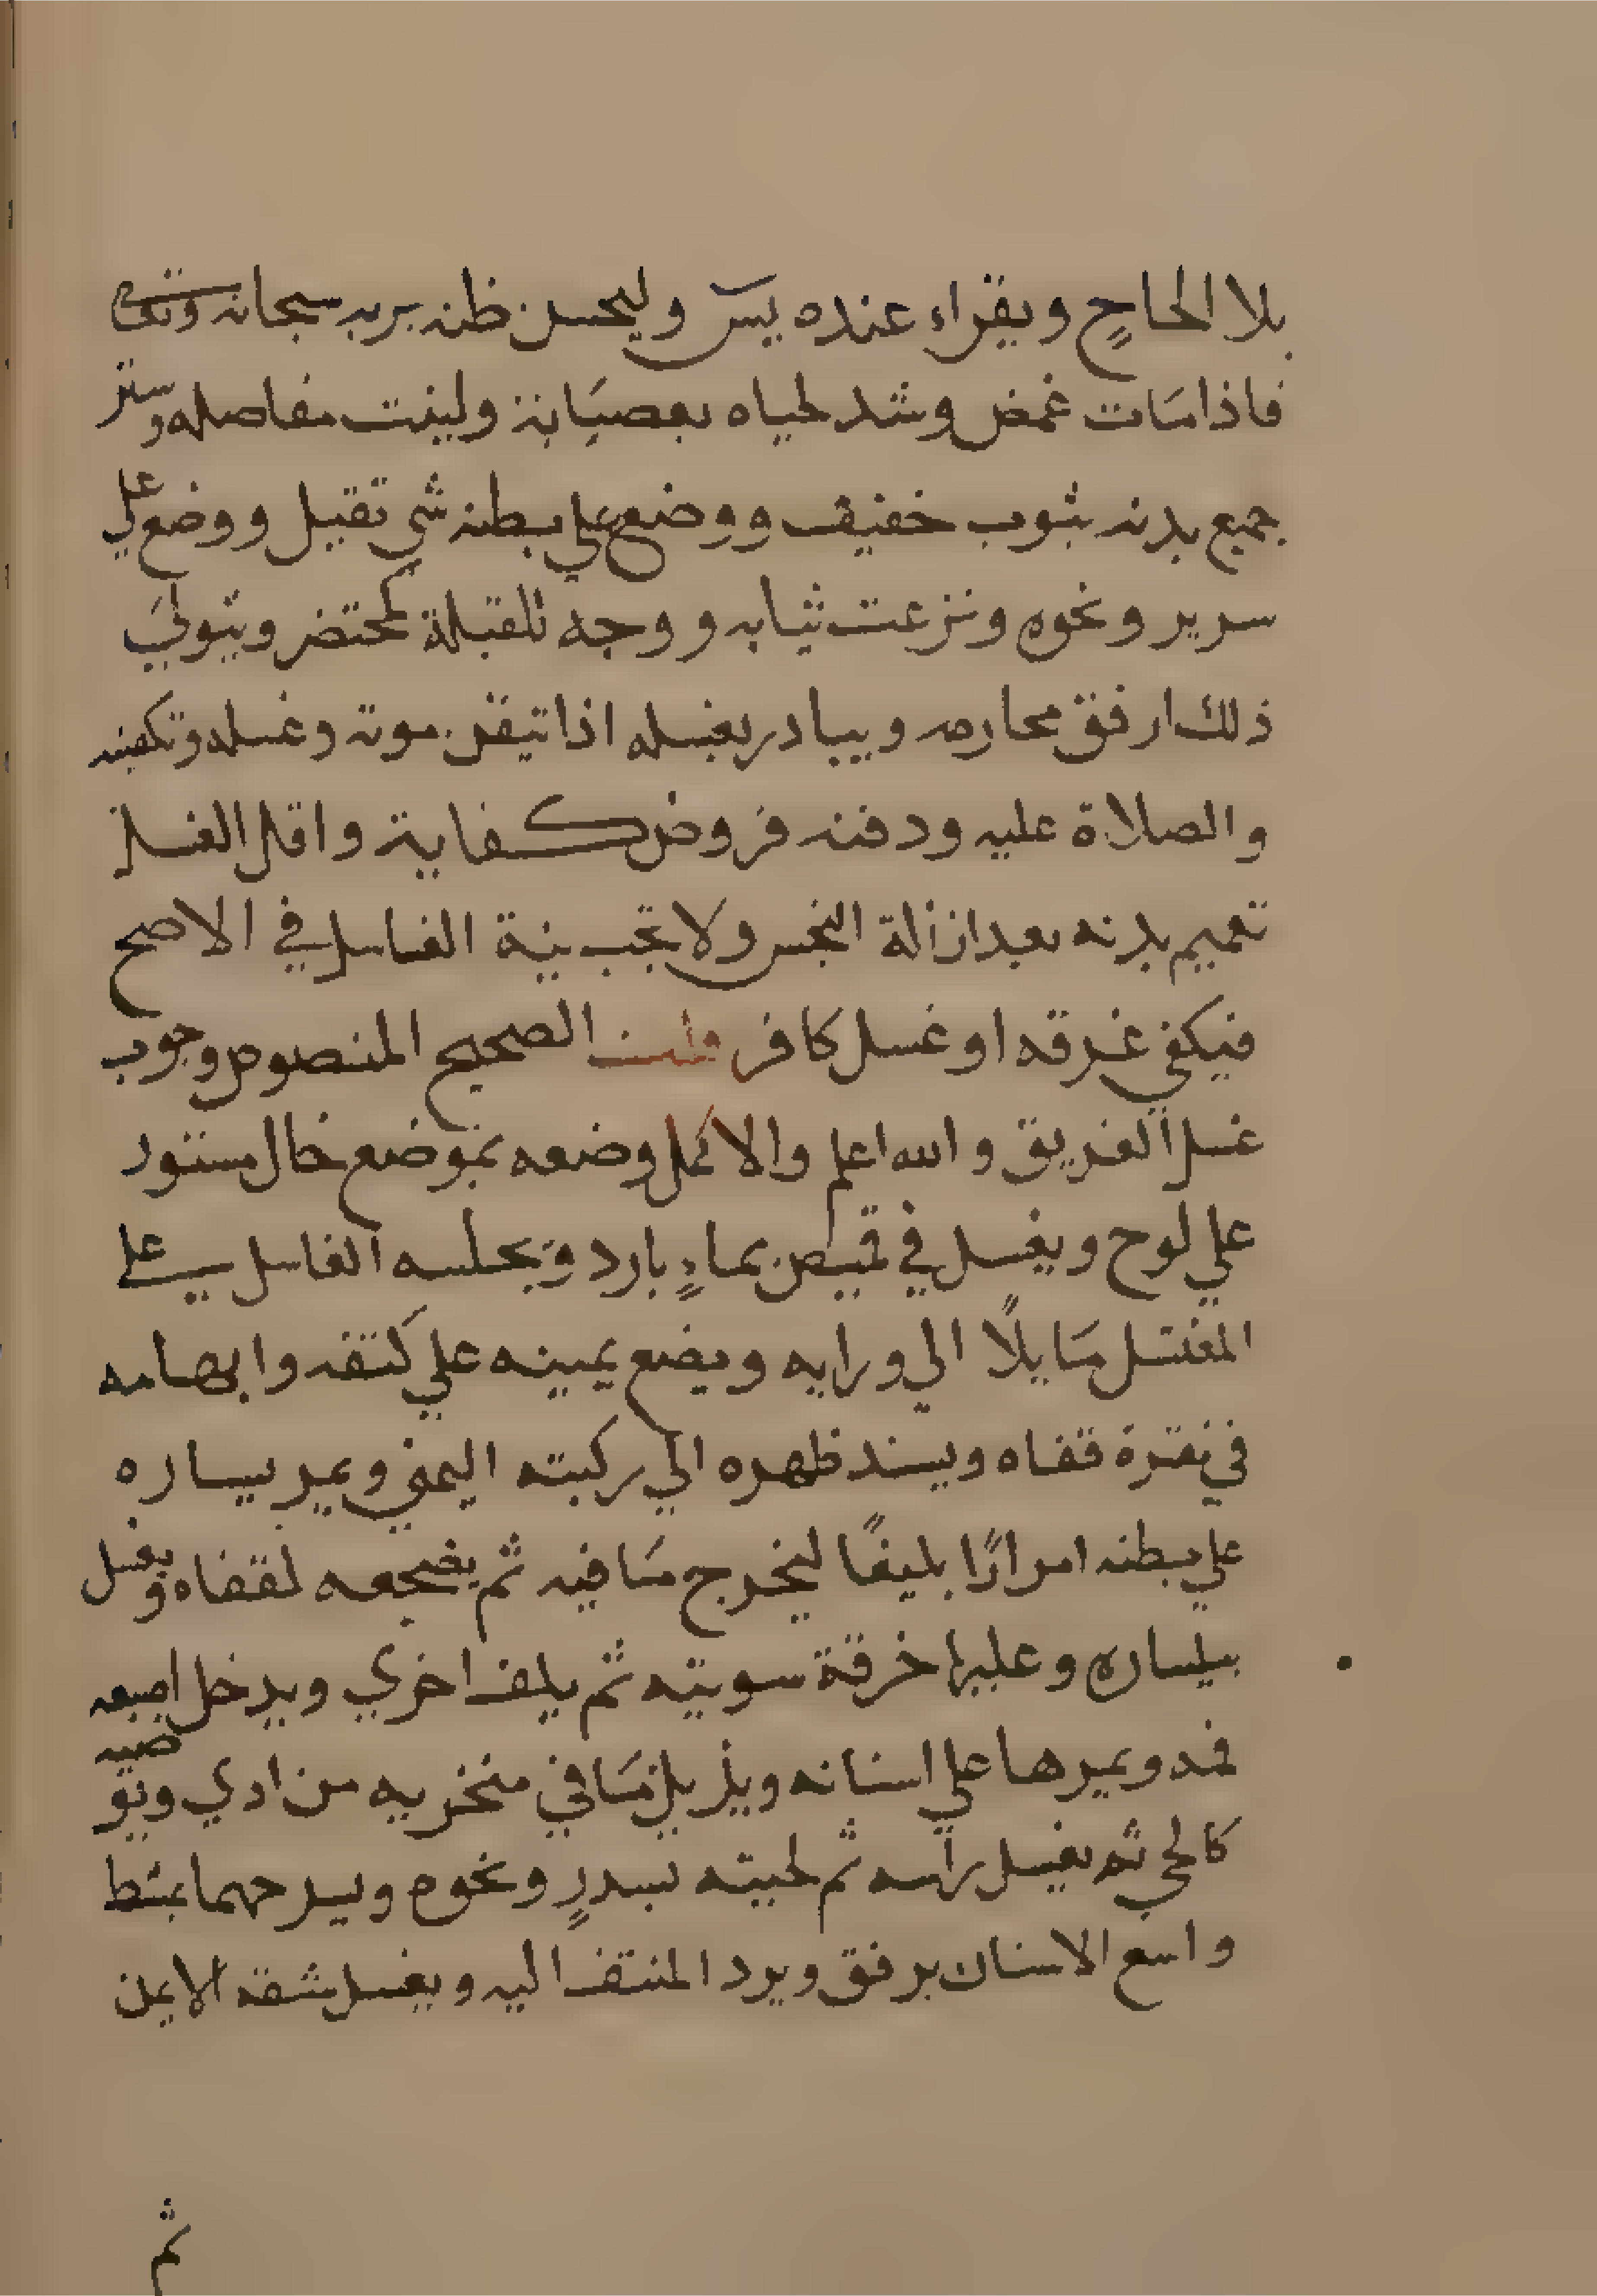 بلا الحاحٍ ويقراء عنده يس وليحسن ظنه بربه سبحانه وتعالى
فاذا مَات غمض وشد لحياه بعصَابة ولينت مفاصله وستر
جميع بدنه بثوب خفيف ووضع علي بطنه شي ثقيل ووضع علي
سرير ونحوه ونزعت ثيابه ووجه للقبلة كمحتضر ويتوليَ
ذلك ارفق محارمه ويبادر بغسله اذا تيقن موته وغسله وتكفينه
والصلاة عليه ودفنه فروض كفاية واقل الغسل
تعميم بدنه بعد ازالة النجس ولا تجب نية الغاسل في الاصح
فيكفي غرقه او غسل كافر قلت الصحيح المنصوص وجوب
غسل الغريق والله اعلم والاكمل وضعه بموضع خال مستور
علي لوح ويغسل في قميص بماءٍ بارد ويجلسه الغاسل علي
المغتسل مَايلًا الي ورايه ويضع يمينه علي كَتفه وابهامه
في نقرة قفاه ويسند ظهره الي ركبته اليمني ويمر يساره
علي بطنه امرارًا بليغًا ليخرج مَا فيه ثم يضجعه لقفاه ويغسل
بيساره وعليها خرقة سوءتيه ثم يلف اخري ويدخل اصبعه
فمه ويمرها علي اسنانه ويزيل مَا في منخريه من اذي ويوضيه
كالحي ثم يغسل راسه ثم لحيته بسدرٍ ونحوه ويسرحهما بمشط
واسع الاسنان برفق ويرد المنتف اليه ويغسل شقه الايمن
ثم